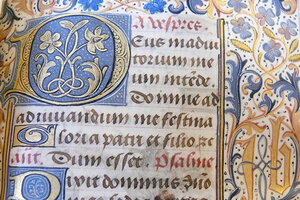 A vespres.
Deus in adiu
torium meum
um intende
Domine ad
adiuuandum me festina
Gloria patri et filio
ant. Dum esset. Psalme
Dixit dominus